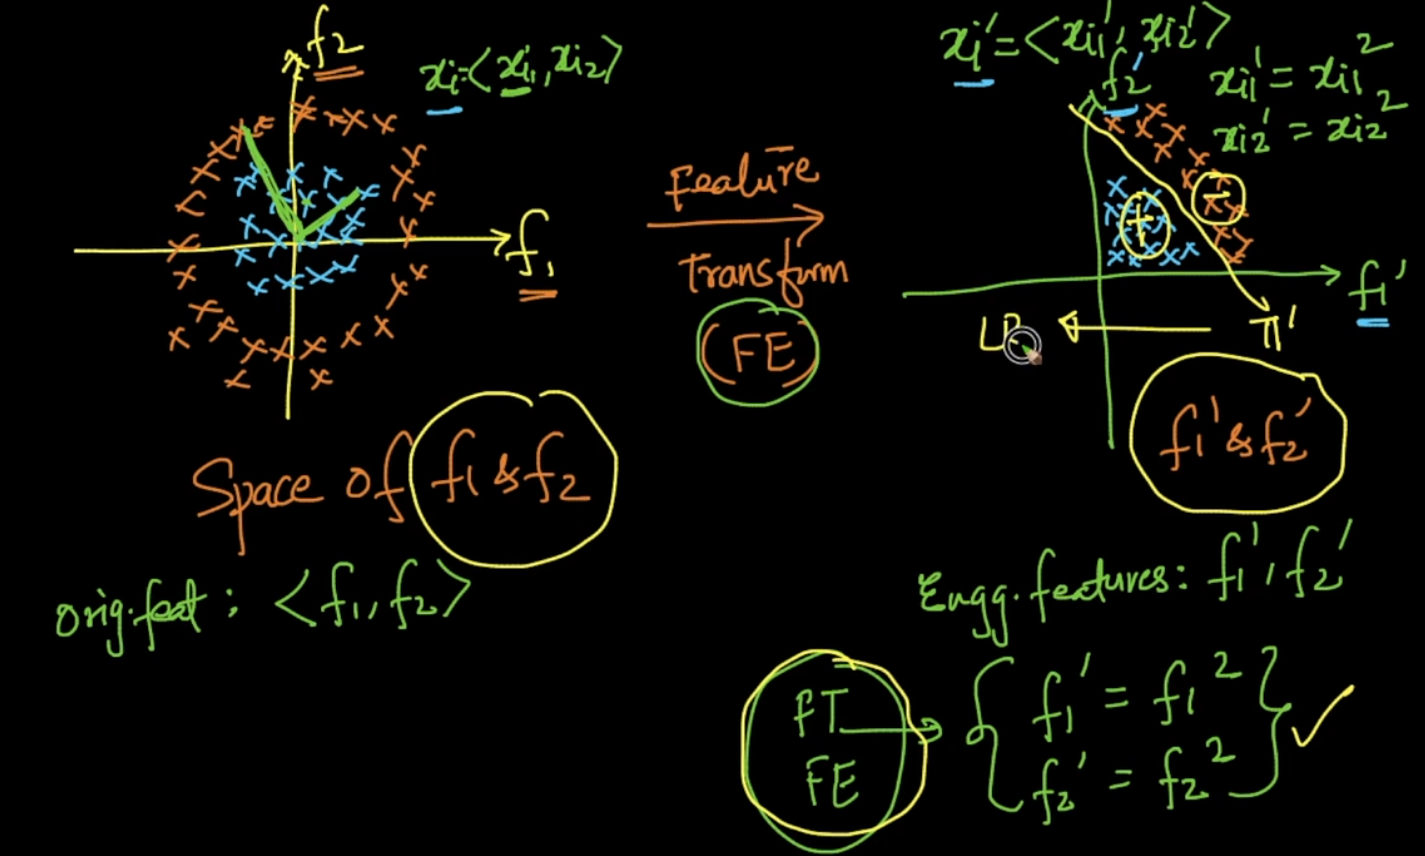 f2
xi=<xi1, xi2>
f1
Space of f1 & f2
orig.feat: <f1, f2>
Feature
Transform
(FE)
xi'=<xi1', xi2'>
f2'
xi1' = xi1²
xi2' = xi2²
-
+
f1'
LR
π'
f1' & f2'
Engg. features: f1', f2'
FT
FE
{ f1' = f1²
f2' = f2² }